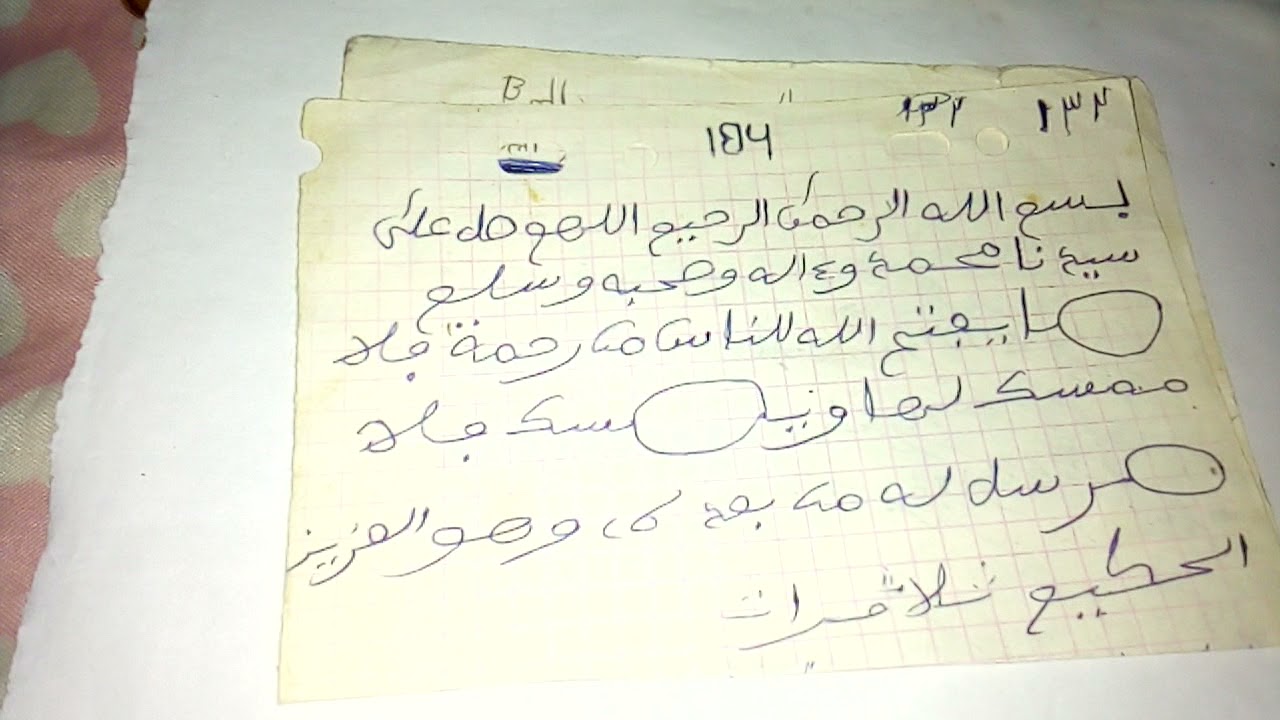 ١٣٢
بسم الله الرحمن الرحيم اللهم صل على
سيدنا محمد وءاله وصحبه وسلم
ما يفتح الله للناس من رحمة فلا
ممسك لها ويمسك فلا
مرسل له من بعده وهو العزيز
الحكيم ثلاث مرات